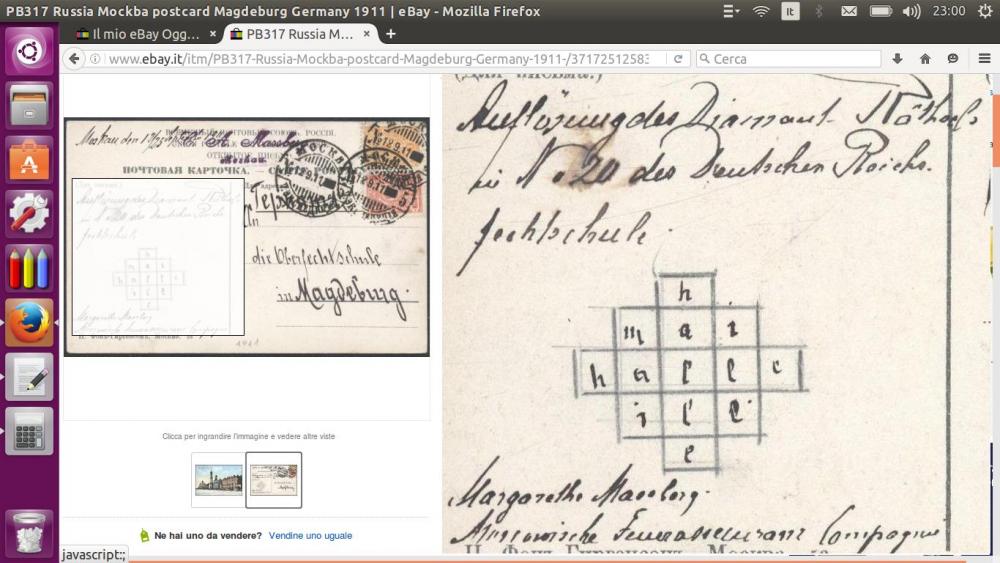 PB317 Russia Mockba postcard Magdeburg Germany 1911 | eBay - Mozilla Firefox
It
23:00
Il mio eBay Ogg… ×
PB317 Russia M… × +
www.ebay.it/itm/PB317-Russia-Mockba-postcard-Magdeburg-Germany-1911-/37172512583
Cerca
Moskau den
ПОЧТОВАЯ КАРТОЧКА.
die Oberfechtschule
in Magdeburg.
Clicca per ingrandire l'immagine e vedere altre viste
Ne hai uno da vendere? Vendine uno uguale
javascript:;
Auflösung des Diamant-Räthsels
in No 20 des Deutschen Reichs-
fechtschule.
h
m a i
h a l l e
i l l
e
Margarethe Massberg.
Compagnie